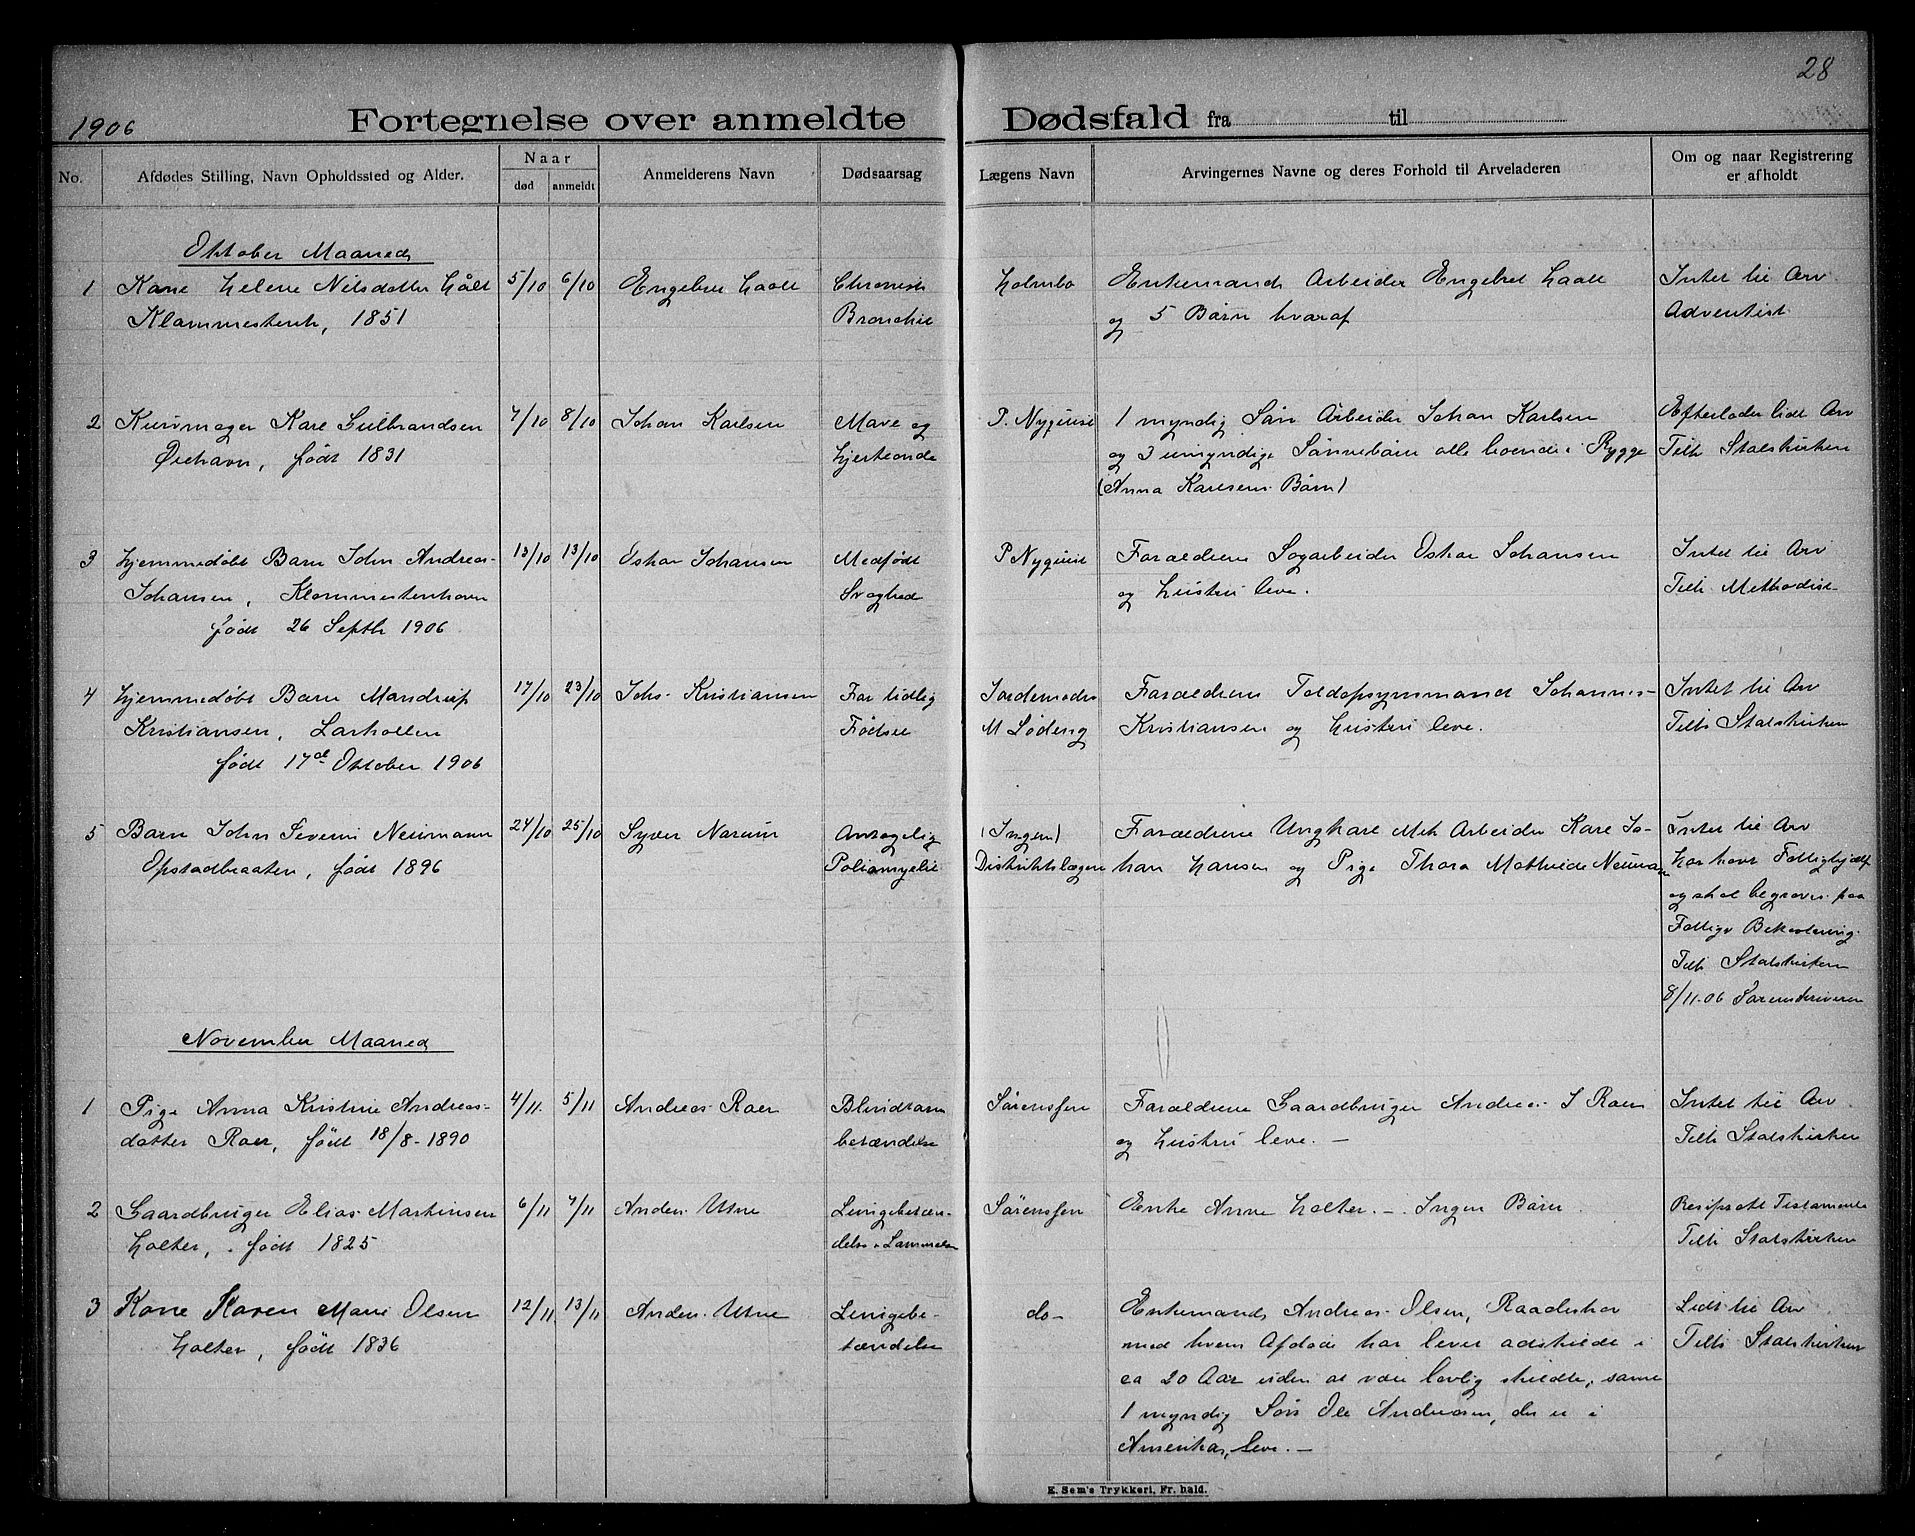 28
1906 Fortegnelse over anmeldte Dødsfald fra til
No. Afdødes Stilling, Navn Opholdssted og Alder. Naar død anmeldt Anmelderens Navn Dødsaarsag Lægens Navn Arvingernes Navne og deres Forhold til Arveladeren Om og naar Registrering er afholdt
Oktober Maaned
1 Kone Helene Nilsdatter Hålt 5/10 6/10 Engebret Haalt Chronisk Holmbo Enkemand Arbeider Engebret Haalt Intet til Arv
1851 Bronchit og 5 Børn hvoraf Adventist
2 Kurvmager Karl Gulbrandsen 7/10 8/10 Johan Karlsen Mave og P. Nyquist 1 myndig Søn Arbeider Johan Karlsen Efterlader lidt Arv
Ørehavn, født 1831 Hjerteonde og 3 umyndige Sønnebørn alle boende i Rygge Tilh Statskirken
(Anna Karlsens Børn)
3 Hjemmedøbt Barn John Andreas 13/10 13/10 Oskar Johansen Medfødt P Nyquist Forældrene Sagarbeider Oskar Johansen Intet til Arv
Johansen, Klommestenhavn Svaghed og Hustru leve. Tilh. Methodist
født 26 Septbr 1906
4 Hjemmedøbt Barn Mandrup 17/10 23/10 Johs. Kristiansen For tidlig Jordemoder Forældrene Toldopsynsmand Johannes Intet til Arv
Kristiansen, Larkollen Fødsel M Lødeng Kristiansen og Hustru leve. Tilh Statskirken
født 17de Oktober 1906
5 Barn John Severin Neumann 24/10 25/10 Syver Norum Antagelig (Ingen) Forældrene Ungkarl Mek Arbeider Karl Jo- Intet til Arv
Opstadbraaten, født 1896 Poliomyelit Distriktslægen han Hansen og Pige Thora Mathilde Neumann Har havt Fattighjælp
og skal begraves paa
Fattigv Bekostning.
Tilh Statskirken
8/11-06 Sorenskriveren
November Maaned
1 Pige Anna Kristine Andreas- 4/11 5/11 Andreas Roer Blindtarm Sørenssen Forældrene Gaardbruger Andreas J Roer Intet til Arv
datter Roer, født 18/8-1890 betændelse og Hustru leve. — Tilh Statskirken
2 Gaardbruger Elias Martinsen 6/11 7/11 Anders Utne Lungebetæn- Sørenssen Enke Anne Holter. — Ingen Børn. Resiprokt Testamente
Holter, født 1825 delse. Lammelse Tilh Statskirken
3 Kone Karen Marie Olsen 12/11 13/11 Anders Utne Lungebe- do- Enkemand Andreas Olsen, Lidt til Arv
Holter, født 1836 tændelse med hvem Afdøde har levet adskildt i Tilh Statskirken
ca 20 Aar uden at være lovlig skildte, samt
1 myndig Søn Ole Andreasen, der er i
Amerika, leve. —
E. Sem's Trykkeri, Fr. hald.